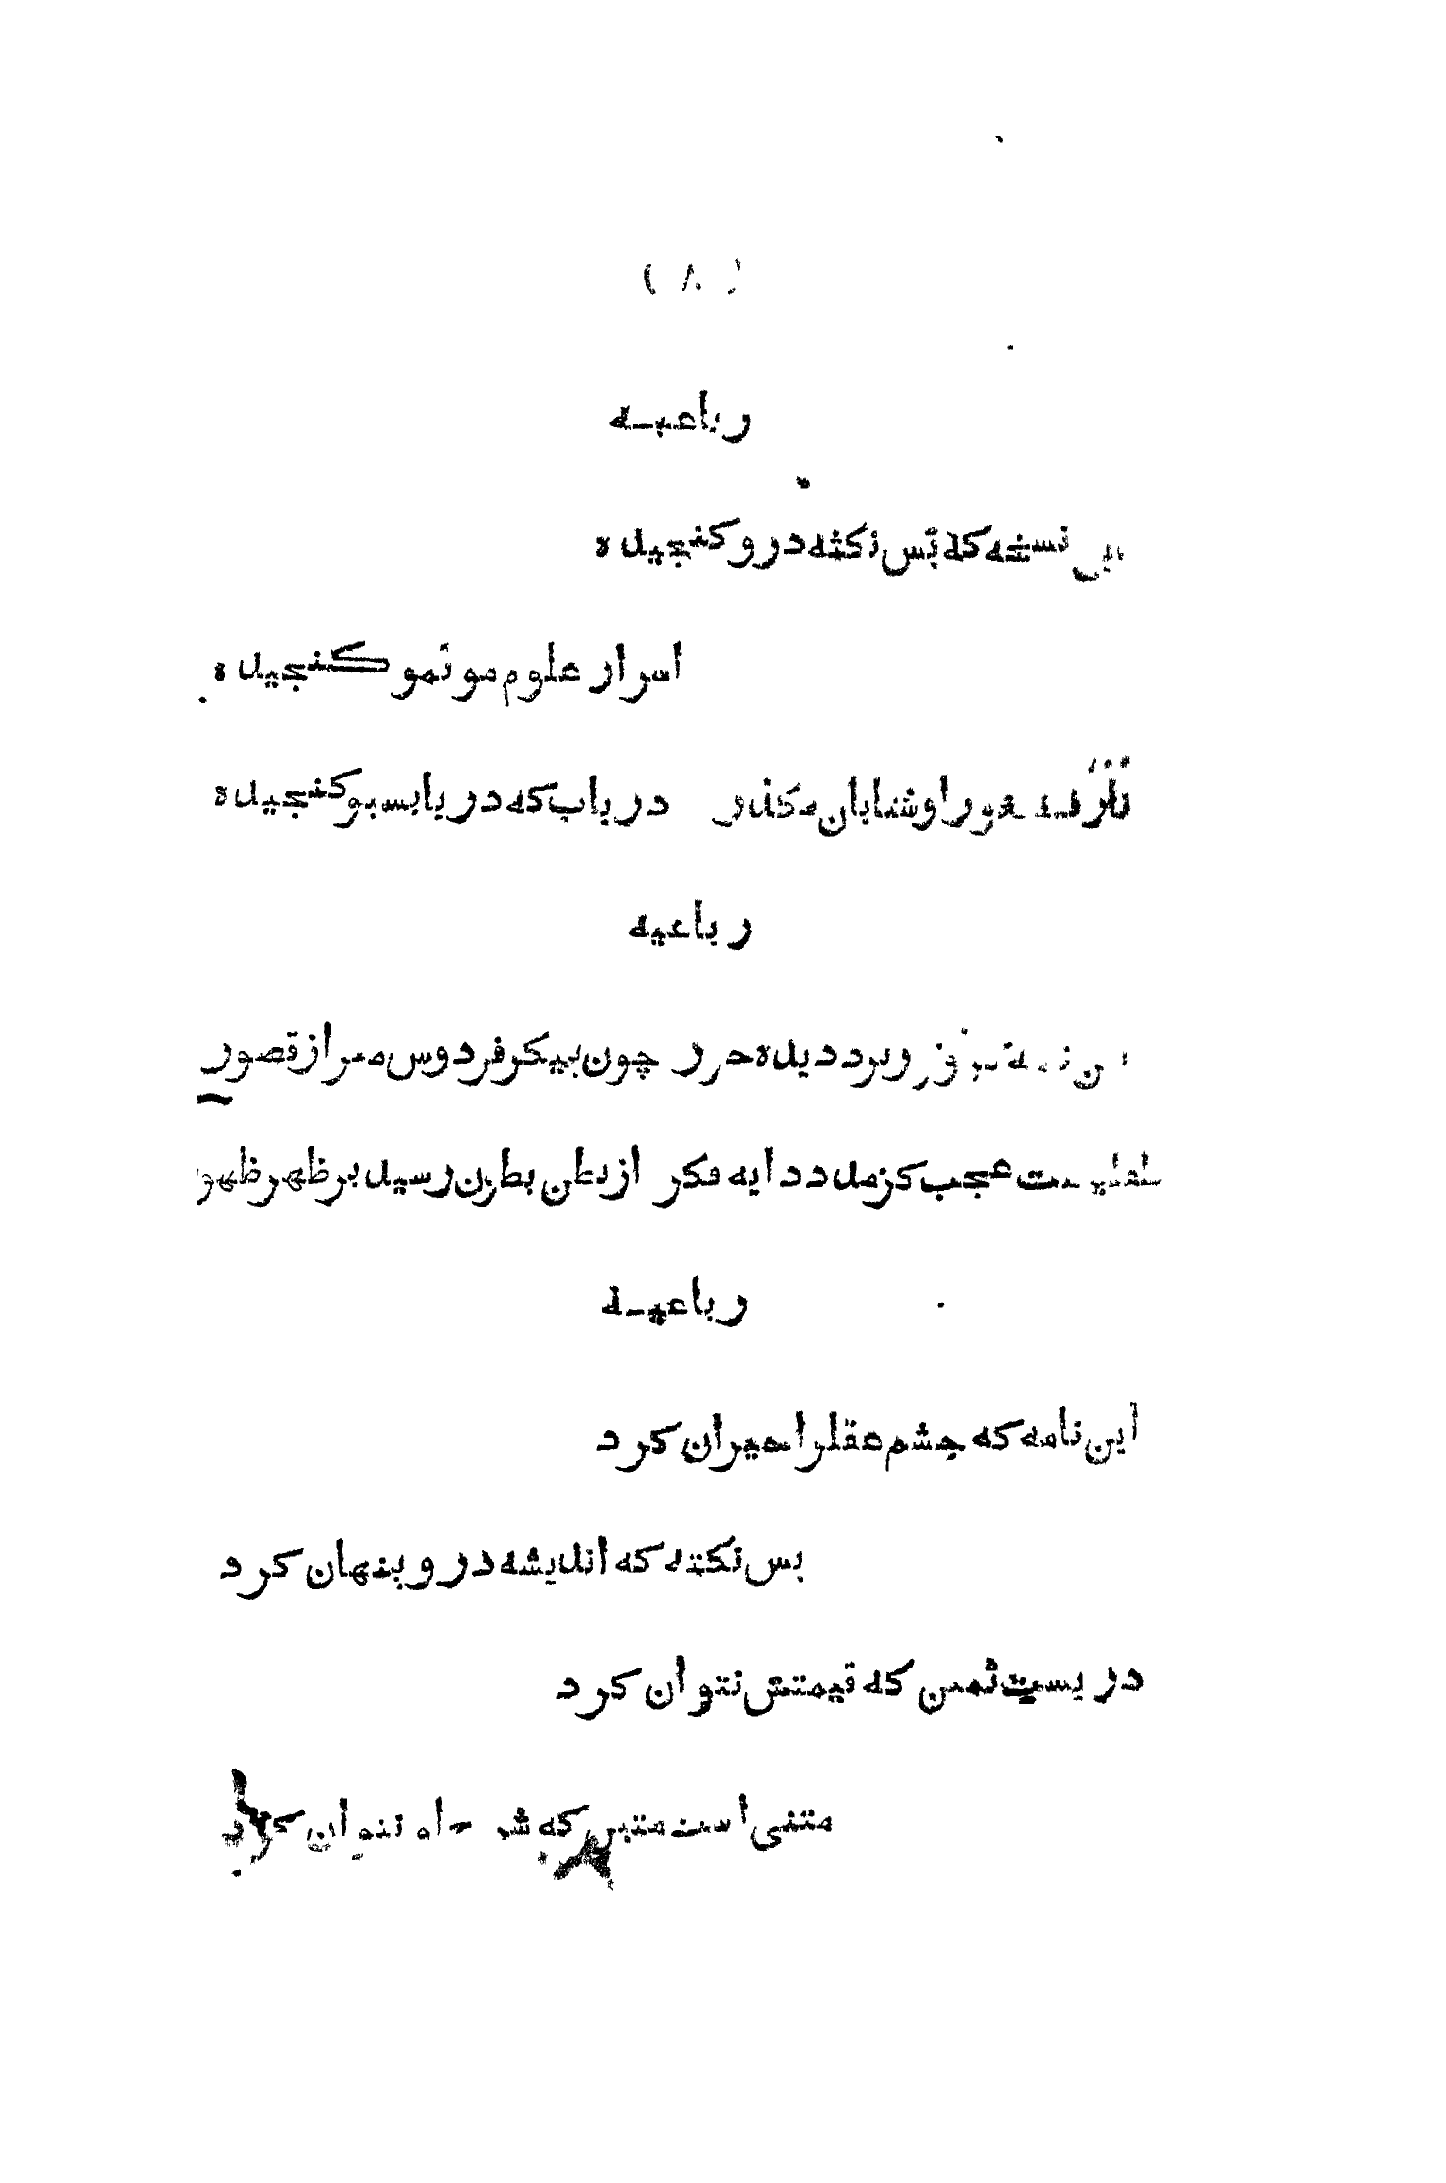 ( ٨ )
رباعیه
این نسخه که بس نکته درو کنجیده
اسرار علوم مو بمو کنجیده
در باب که دریا بسبو کنجیده
رباعیه
دیده حور چون پیکر فردوس مبرا از قصور
عجب کز مدد دایه فکر از بطن بطون رسید بر ظهر ظهور
رباعیه
این نامه که چشم عقلرا حیران کرد
بس نکته که اندیشه درو پنهان کرد
دریست ثمین که قیمتش نتوان کرد
متنی است متین که شرح او نتوان کرد